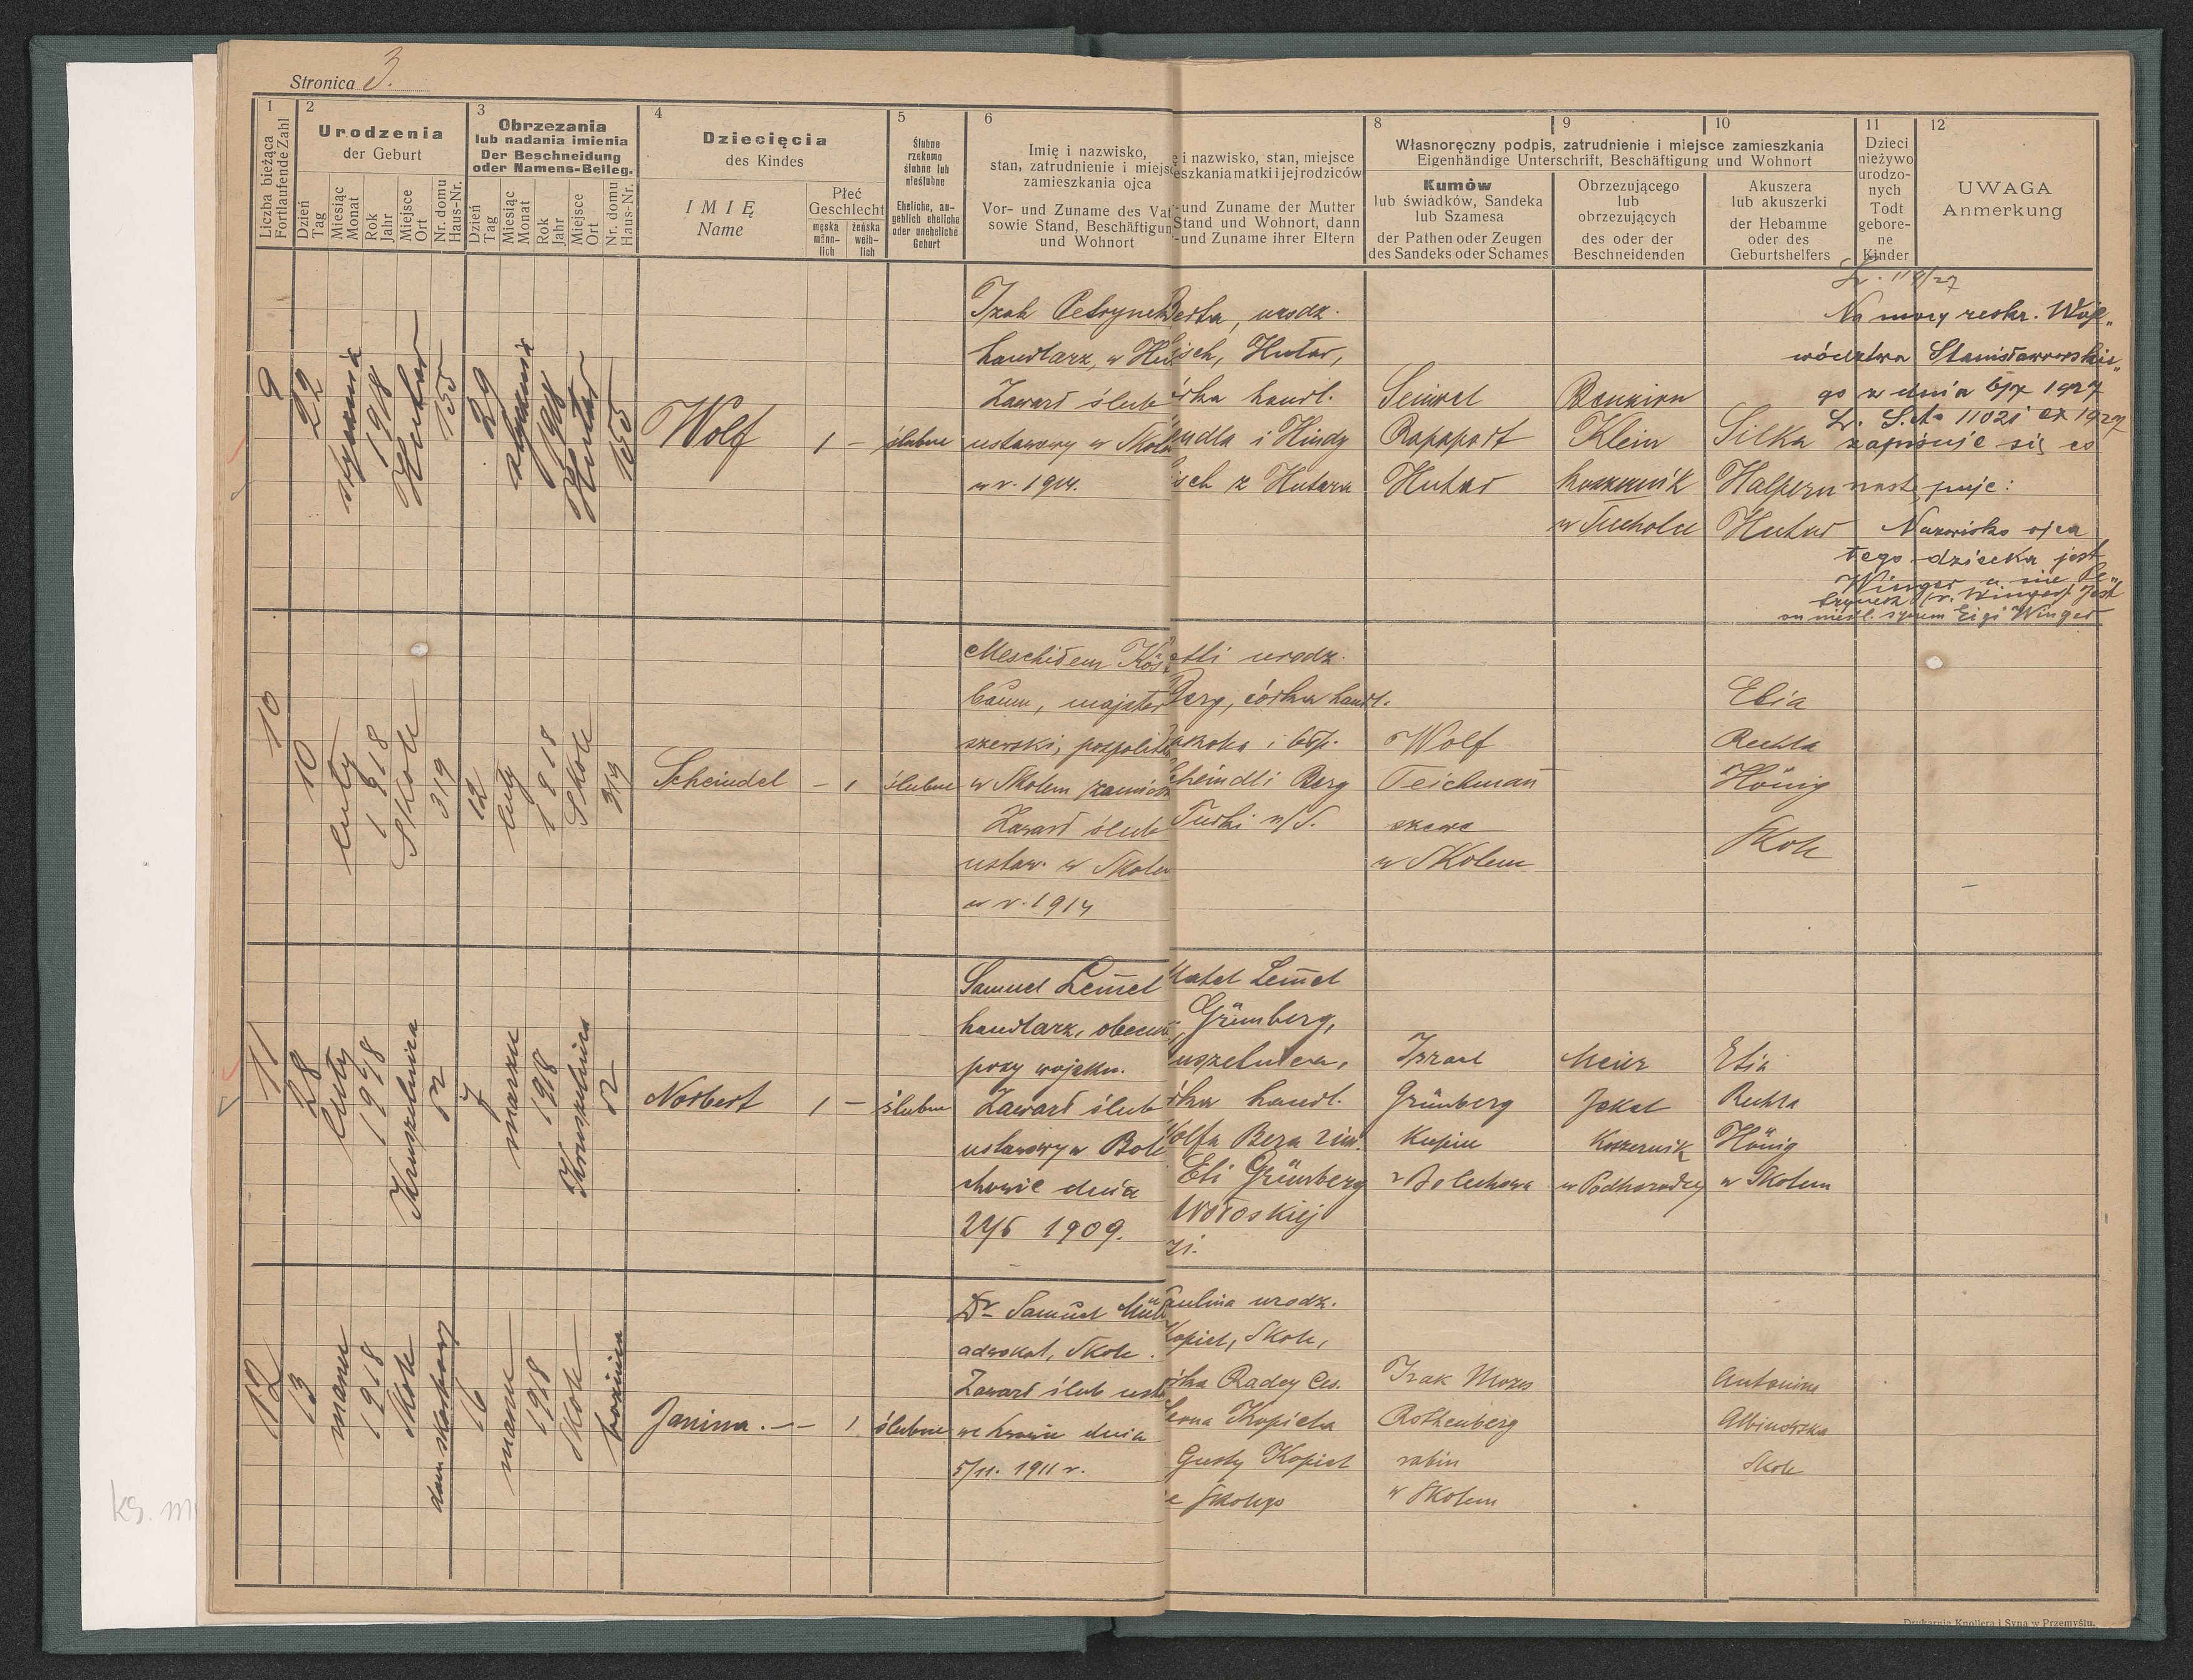 Stronica 3.
1
Liczba bieżąca
Fortlaufende Zahl
2
Urodzenia
der Geburt
Dzień
Tag
Miesiąc
Monat
Rok
Jahr
Miejsce
Ort
Nr. domu
Haus-Nr.
3
Obrzezania
lub nadania imienia
Der Beschneidung
oder Namens-Beileg.
Dzień
Tag
Miesiąc
Monat
Rok
Jahr
Miejsce
Ort
Nr. domu
Haus-Nr.
4
Dziecięcia
des Kindes
IMIĘ
Name
Płeć
Geschlecht
męska
männ-
lich
żeńska
weib-
lich
5
Ślubne
rzekomo
ślubne lub
nieślubne
Eheliche, an-
geblich eheliche
oder uneheliche
Geburt
6
Imię i nazwisko,
stan, zatrudnienie i miejsc
zamieszkania ojca
Vor- und Zuname des Vat
sowie Stand, Beschäftigun
und Wohnort
ę i nazwisko, stan, miejsce
eszkania matki i jej rodziców
-und Zuname der Mutter
Stand und Wohnort, dann
-und Zuname ihrer Eltern
Własnoręczny podpis, zatrudnienie i miejsce zamieszkania
Eigenhändige Unterschrift, Beschäftigung und Wohnort
8
Kumów
lub świadków, Sandeka
lub Szamesa
der Pathen oder Zeugen
des Sandeks oder Schames
9
Obrzezującego
lub
obrzezujących
des oder der
Beschneidenden
10
Akuszera
lub akuszerki
der Hebamme
oder des
Geburtshelfers
11
Dzieci
nieżywo
urodzo-
nych
Todt
gebore-
ne
Kinder
12
UWAGA
Anmerkung
9
22
stycznia
1918
Hutar
155
29
stycznia
1918
Hutar
155
Wolf
1
–
ślubne
Izak Petrynek
handlarz, w Hu
Zawarł ślub
ustawowy w Skole
w r. 1914.
Berta, urodz.
isch, Hutar,
órka handl.
i Hindy
isch z Hutara
Rapaport
Hutar
Klein
koszernik
w Tucholce
Silka
Halpern
Hutar
Na mocy reskr. Woje„
wództwa Stanisławowskie„
go z dnia 6/X 1927
zapisuje się co
nastepuje:
Nazwisko ojca
tego dziecka jest
Winger a nie Pe„
trynek r. Winger, jest
on nieśl. synem Eigi Winger
10
10
luty
1918
Skole
319
12
luty
1918
Skole
319
Scheindel
–
1
ślubne
baum, majster
szewski, pospolit
w Skolem zamieszk
Zawarł ślub
ustaw. w Skolem
w r. 1914
etli urodz.
Berg, córka handl.
cheindli Berg
Turki n/S.
Wolf
Teichman
szewc
w Skolem
Etia
Ruchla
Hönig
Skole
11
28
luty
1918
Kruszelnica
2
7
marzec
1918
Kruszelnica
2
Norbert
1
–
ślubne
Samuel Lemel
handlarz, obecnie
przy wojsku.
Zawarł ślub
ustawowy w Bole
chowie dnia
1909.
Lemel
Grünberg,
uszelnica,
órka handl.
olfa Bera 2 im.
Eti Grünberg
Wołoskiej
si.
Izrael
Grünberg
kupiec
z Bolechowa
Meier
Jekel
Koszernik
w Podhorodcy
Etia
Ruchla
Hönig
w Skolem
12
13
marzec
1918
Skole
16
marzec
1918
Skole
Janina. –
1
ślubne
Dr Samuel Mül
adwokat, Skole.
Zawarł ślub ust
we Lwowie dnia
5/11. 1911 r.
aulina urodz.
Kopiel, Skole,
órka Radcy Ces.
Kopiela
Gusty Kopiel
e Skolego
Izak Mozes
Rothenberg
rabin
w Skolem
Antonina
Albinowska
Skole
ks. m
Drukarnia Knollera i Syna w Przemyślu.